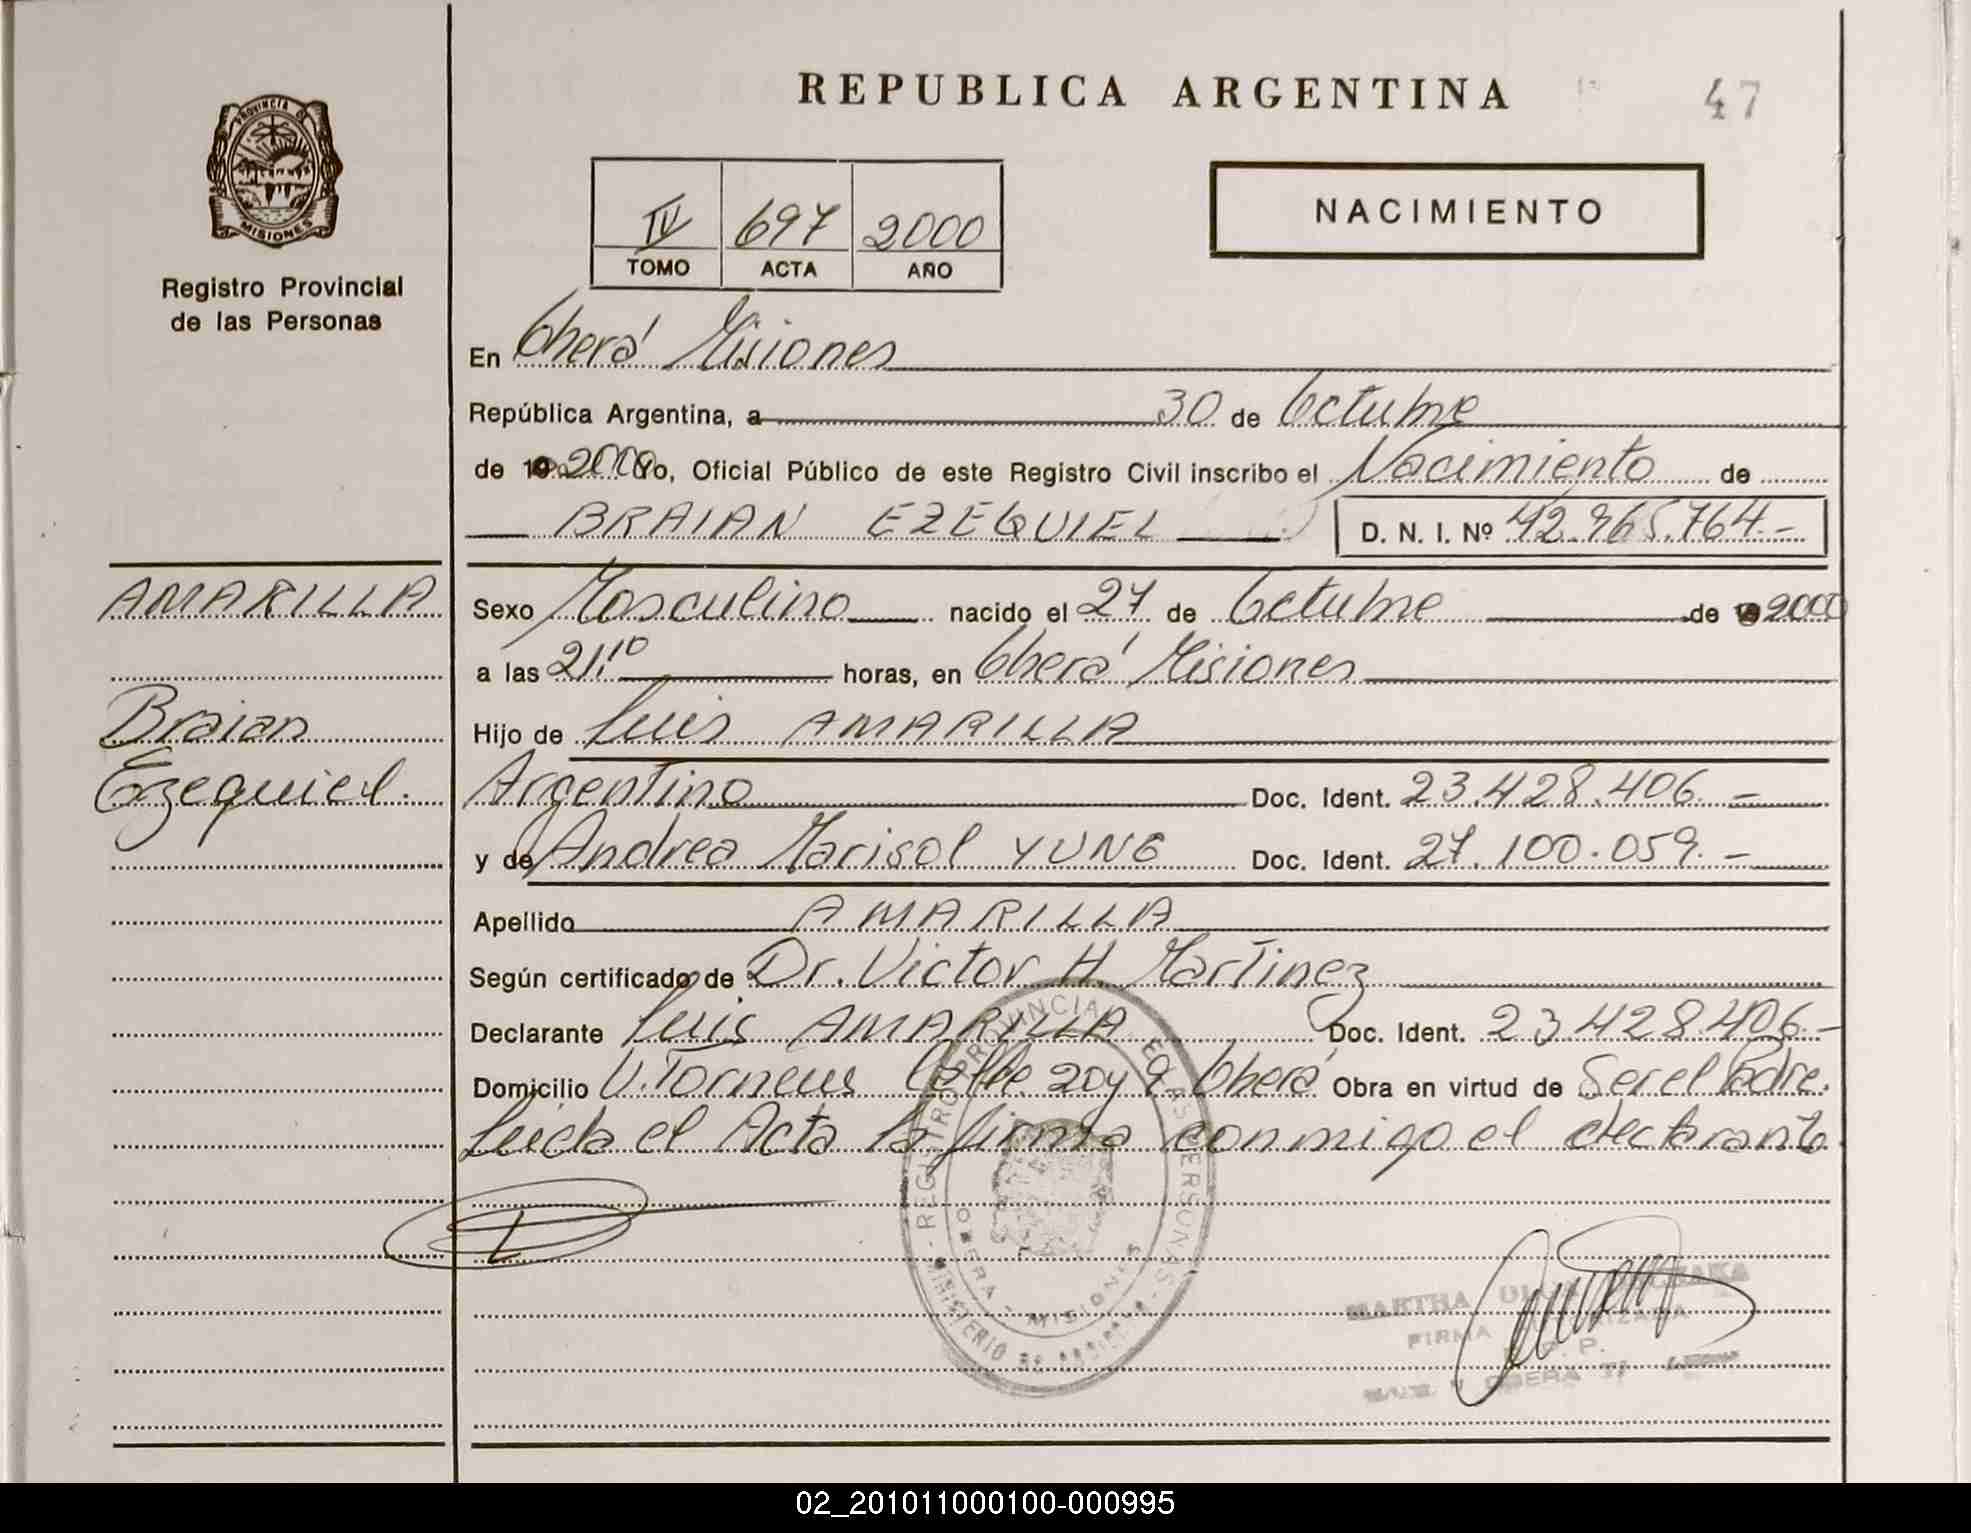 REPUBLICA ARGENTINA
47
PROVINCIA DE
MISIONES
Registro Provincial
de las Personas
IV 697 2000
TOMO ACTA AÑO
NACIMIENTO
En Oberá Misiones
República Argentina, a 30 de Octubre
de 2000 Yo, Oficial Público de este Registro Civil inscribo el Nacimiento de
BRAIAN EZEQUIEL D. N. I. Nº 42.965.764.-
AMARILLA
Sexo Masculino nacido el 27 de Octubre de 2000
a las 21,10 horas, en Oberá Misiones
Braian
Hijo de Luis AMARILLA
Ezequiel.
Argentino Doc. Ident. 23.428.406.-
y de Andrea Marisol YUNG Doc. Ident. 27.100.059.-
Apellido AMARILLA
Según certificado de Dr. Victor H. Martinez
Declarante Luis AMARILLA Doc. Ident. 23.428.406.-
Domicilio V. Torneus Calle 20 y 9 Oberá Obra en virtud de Ser el Padre.
Leida el Acta la firma conmigo el declarante
REGISTRO PROVINCIAL DE LAS PERSONAS
OBERA - MISIONES
MINISTERIO DE
MARTHA OLGA
FIRMA AUTORIZADA
OBERA
02_201011000100-000995